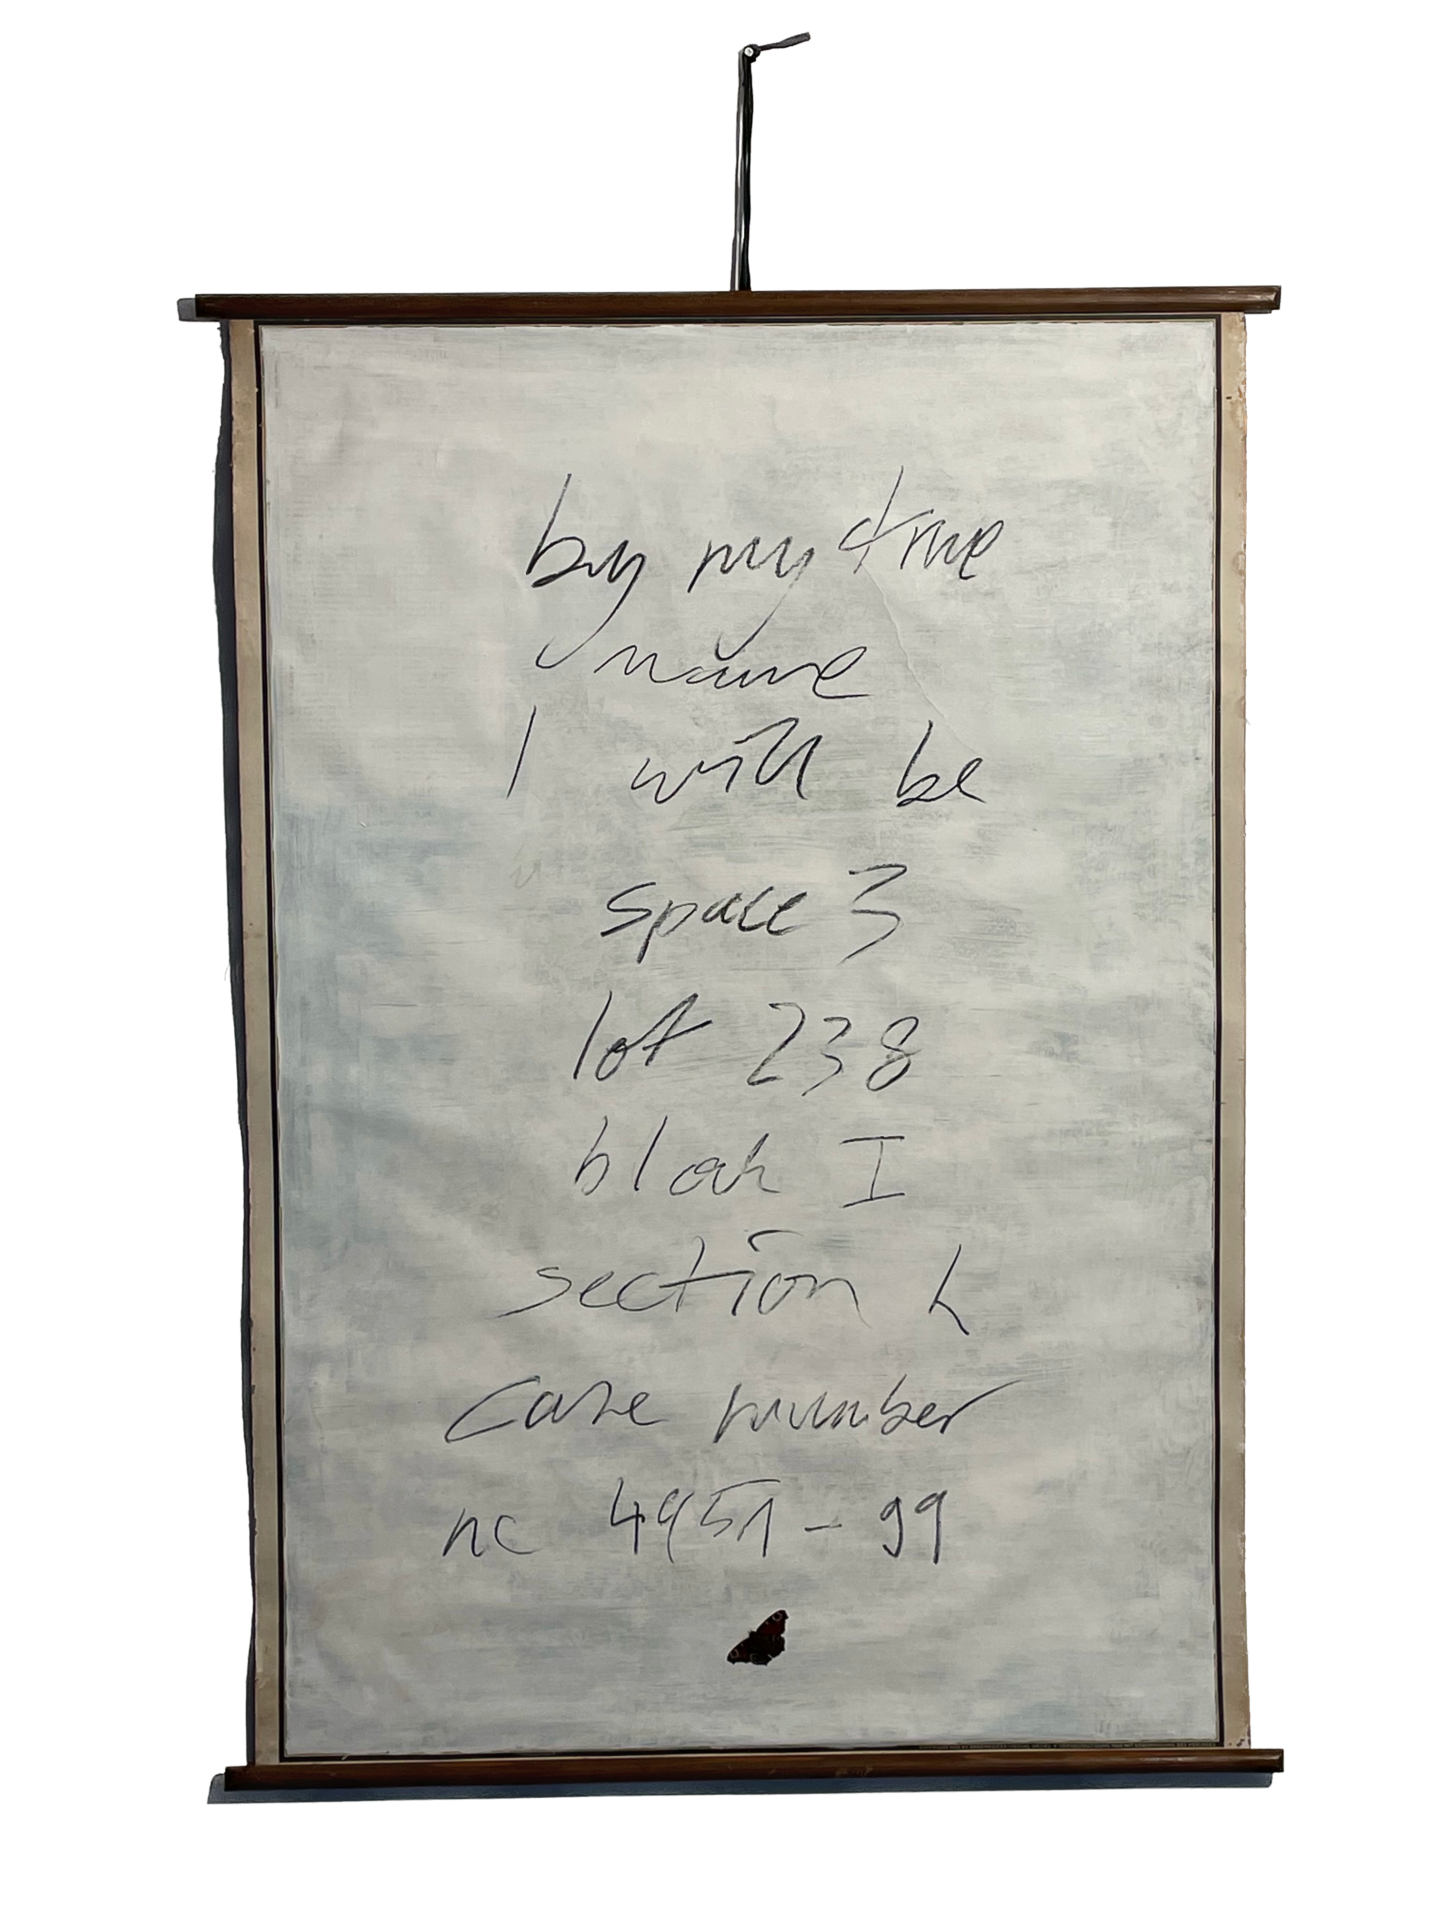 by my true
name
I will be
space 3
lot 238
block I
section L
case number
nc 4951-99